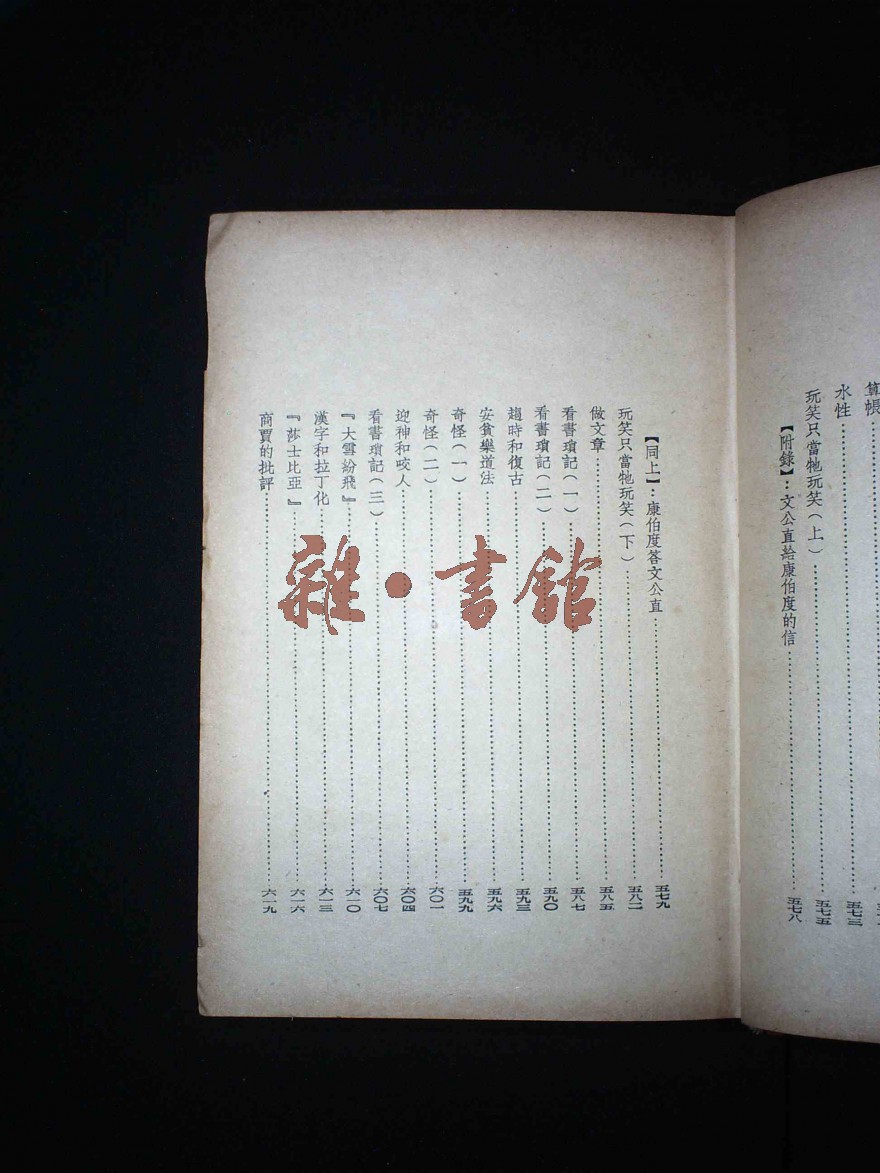 算帳
水性……五七三
玩笑只當牠玩笑（上）……五七五
【附錄】：文公直給康伯度的信……五七八
【同上】：康伯度答文公直……五七九
玩笑只當牠玩笑（下）……五八二
做文章……五八五
看書瑣記（一）……五八七
看書瑣記（二）……五九〇
趨時和復古……五九三
安貧樂道法……五九六
奇怪（一）……五九九
奇怪（二）……六〇一
迎神和咬人……六〇四
看書瑣記（三）……六〇七
『大雪紛飛』……六一〇
漢字和拉丁化……六一三
『莎士比亞』……六一六
商賈的批評……六一九
雜·書館